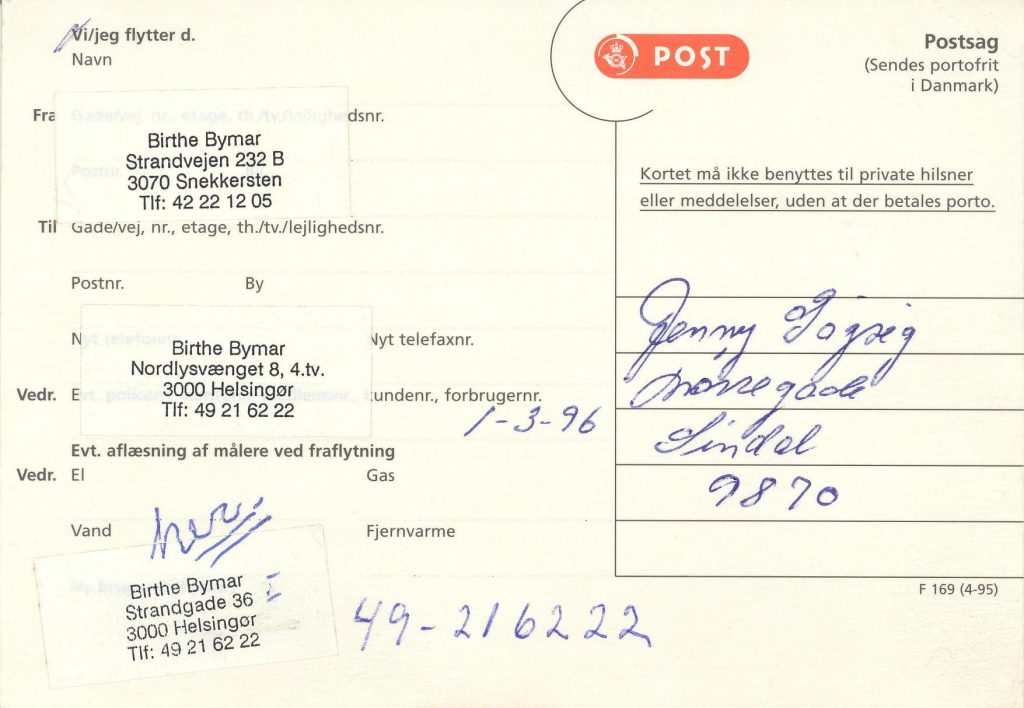 Vi/jeg flytter d.
Navn
Fra Gade/vej, nr., etage, th./tv./lejlighedsnr.
Birthe Bymar
Strandvejen 232 B
3070 Snekkersten
Tlf: 42 22 12 05
Postnr.
Til Gade/vej, nr., etage, th./tv./lejlighedsnr.
Postnr. By
Nyt telefonnr. Nyt telefaxnr.
Birthe Bymar
Nordlysvænget 8, 4.tv.
3000 Helsingør
Tlf: 49 21 62 22
Vedr. Evt. kundenr., forbrugernr.
1-3-96
Evt. aflæsning af målere ved fraflytning
Vedr. El Gas
Vand Fjernvarme
Birthe Bymar
Strandgade 36
3000 Helsingør
Tlf: 49 21 62 22
49-216222
POST
Postsag
(Sendes portofrit
i Danmark)
Kortet må ikke benyttes til private hilsner
eller meddelelser, uden at der betales porto.
Jenny Sigsig
Nørregade
Sindal
9870
F 169 (4-95)